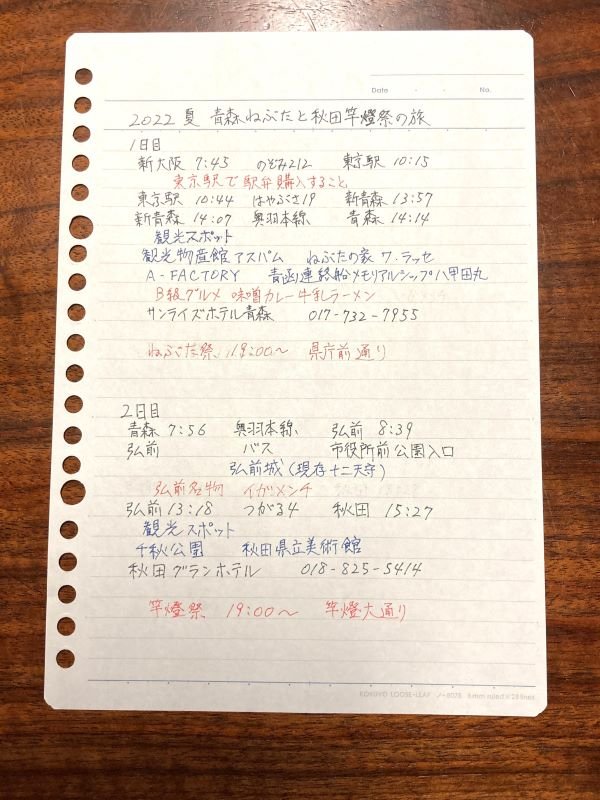 Date ・ ・ No.
2022 夏 青森ねぶたと秋田竿燈祭の旅
1日目
新大阪 7:45 のぞみ212 東京駅 10:15
東京駅で駅弁購入すること
東京駅 10:44 はやぶさ19 新青森 13:57
新青森 14:07 奥羽本線 青森 14:14
観光スポット
観光物産館アスパム ねぶたの家 ワ・ラッセ
A-FACTORY 青函連絡船メモリアルシップ八甲田丸
B級グルメ 味噌カレー牛乳ラーメン
サンライズホテル青森 017-732-7955
ねぶた祭 19:00〜 県庁前通り
2日目
青森 7:56 奥羽本線 弘前 8:39
弘前 バス 市役所前公園入口
弘前城(現存十二天守)
弘前名物 イガメンチ
弘前 13:18 つがる4 秋田 15:27
観光スポット
千秋公園 秋田県立美術館
秋田グランホテル 018-825-5414
竿燈祭 19:00〜 竿燈大通り
KOKUYO LOOSE-LEAF ノ-802B 6mm ruled×28 lines